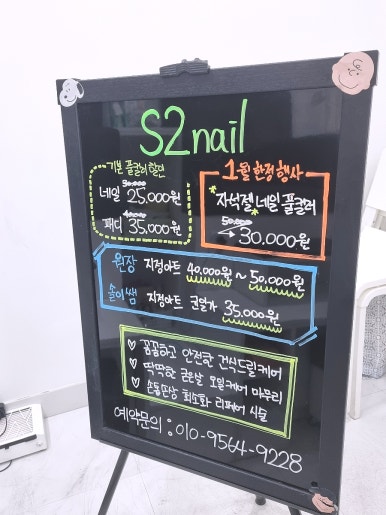 S2nail
기본 풀컬러 할인
30,000
네일 25,000원
40,000
패디 35,000원
1월 한정 행사
*자석젤 네일 풀컬러*
50,000
→ 30,000원
원장 지정아트 40,000원 ~ 50,000원
솔이쌤 지정아트 균일가 35,000원
♡ 꼼꼼하고 안전한 건식드릴케어
♡ 딱딱한 굳은살 오일케어 마무리
♡ 손톱손상 최소화 리페어 시술
예약문의 : 010-9564-9228